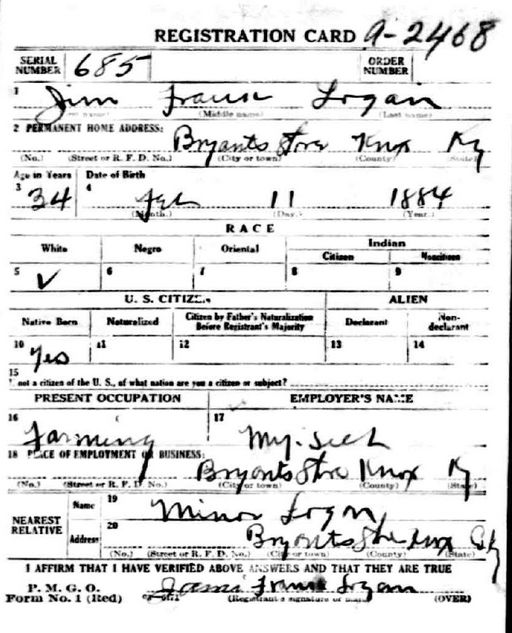 REGISTRATION CARD A-2468
SERIAL NUMBER 685 ORDER NUMBER
1 Jim Logan
(First name) (Middle name) (Last name)
2 PERMANENT HOME ADDRESS: Bryants Store Knox Ky
(No.) (Street or R. F. D. No.) (City or town) (County) (State)
Age in Years Date of Birth
3 34 4 Feb 11 1884
(Month.) (Day.) (Year.)
RACE
White Negro Oriental Indian
Citizen Noncitizen
5 ✓ 6 7 8 9
U. S. CITIZEN ALIEN
Native Born Naturalized Citizen by Father's Naturalization Before Registrant's Majority Declarant Non-declarant
10 Yes 11 12 13 14
15
If not a citizen of the U. S., of what nation are you a citizen or subject?
PRESENT OCCUPATION EMPLOYER'S NAME
16 Farming 17 My-Self
18 PLACE OF EMPLOYMENT OR BUSINESS: Bryants Store Knox Ky
(No.) (Street or R. F. D. No.) (City or town) (County) (State)
NEAREST RELATIVE
Name 19 Minor Logan
Address 20 Bryants Store Knox Ky
(No.) (Street or R. F. D. No.) (City or town) (County) (State)
I AFFIRM THAT I HAVE VERIFIED ABOVE ANSWERS AND THAT THEY ARE TRUE
P. M. G. O.
Form No. 1 (Red) (Registrant's signature or mark) (OVER)